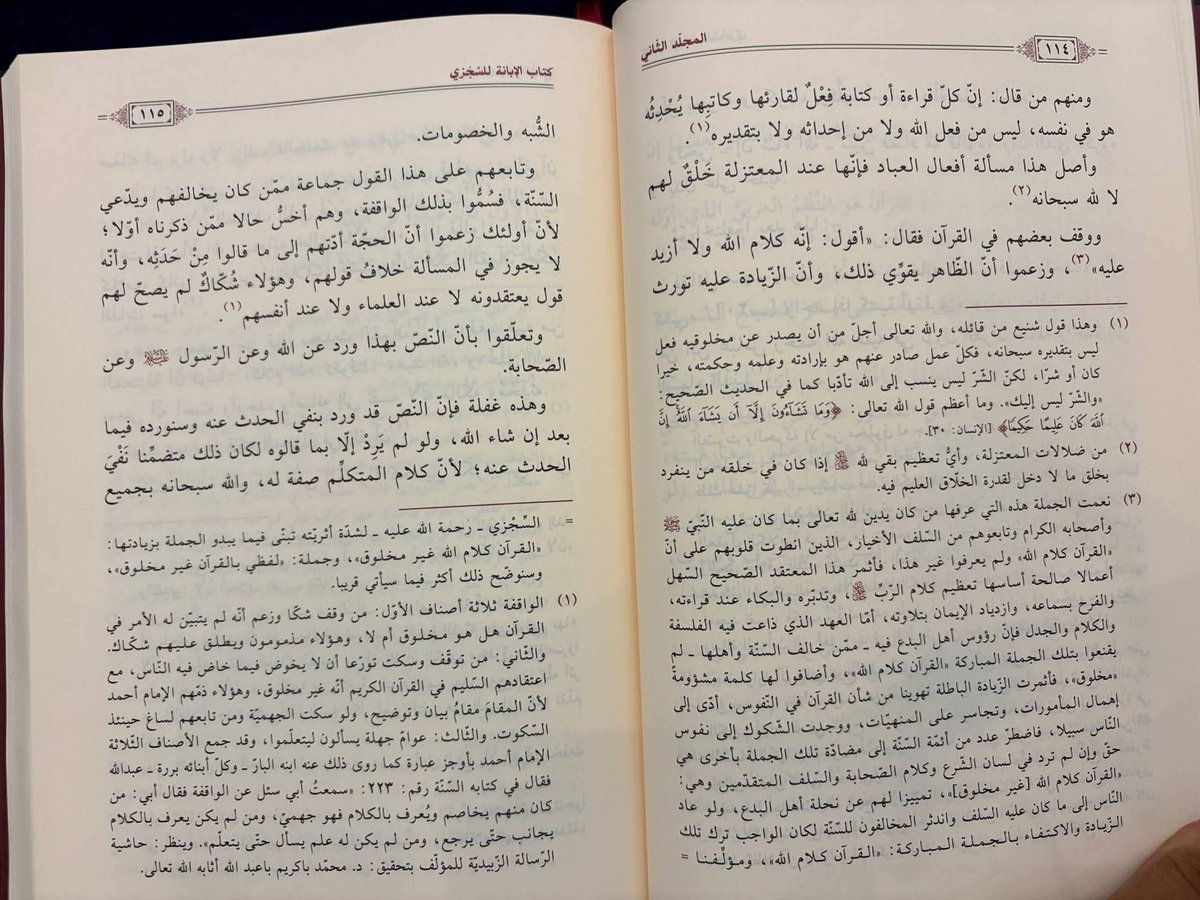 ١١٤
المجلّد الثّاني
ومنهم من قال: إنّ كلّ قراءة أو كتابة فِعْلٌ لقارئها وكاتبِها يُحْدِثُه
هو في نفسه، ليس من فعل الله ولا من إحداثه ولا بتقديره(١).
وأصل هذا مسألة أفعال العباد فإنّها عند المعتزلة خَلْقٌ لهم
لا لله سبحانه(٢).
ووقف بعضهم في القرآن فقال: «أقول: إنّه كلام الله ولا أزيد
عليه»(٣)، وزعموا أنّ الظّاهر يقوّي ذلك، وأنّ الزّيادة عليه تورث
(١) وهذا قول شنيع من قائله، والله تعالى أجلّ من أن يصدر عن مخلوقيه فعل
ليس بتقديره سبحانه، فكلّ عمل صادر عنهم هو بإرادته وعلمه وحكمته، خيرا
كان أو شرّا، لكنّ الشّرّ ليس ينسب إلى الله تأدّبا كما في الحديث الصّحيح:
«والشّرّ ليس إليك». وما أعظم قول الله تعالى: ﴿وَمَا تَشَآءُونَ إِلَّآ أَن يَشَآءَ ٱللَّهُۚ إِنَّ
ٱللَّهَ كَانَ عَلِيمًا حَكِيمًا﴾ [الإنسان: ٣٠].
(٢) من ضلالات المعتزلة، وأيُّ تعظيم بقي لله ﷻ إذا كان في خلقه من ينفرد
بخلق ما لا دخل لقدرة الخلّاق العليم فيه.
(٣) نعمت الجملة هذه التي عرفها من كان يدين لله تعالى بما كان عليه النّبيّ ﷺ
وأصحابه الكرام وتابعوهم من السّلف الأخيار، الذين انطوت قلوبهم على أنّ
«القرآن كلام الله» ولم يعرفوا غير هذا، فأثمر هذا المعتقد الصّحيح السّهل
أعمالا صالحة أساسها تعظيم كلام الرّبّ ﷻ، وتدبّره والبكاء عند قراءته،
والفرح بسماعه، وازدياد الإيمان بتلاوته، أمّا العهد الذي ذاعت فيه الفلسفة
والكلام والجدل فإنّ رؤوس أهل البدع فيه ـ ممّن خالف السّنّة وأهلها ـ لم
يقنعوا بتلك الجملة المباركة «القرآن كلام الله»، وأضافوا لها كلمة مشؤومةً
«مخلوق»، فأثمرت الزّيادة الباطلة تهوينا من شأن القرآن في النّفوس، أدّى إلى
إهمال المأمورات، وتجاسر على المنهيّات، ووجدت الشّكوك إلى نفوس
النّاس سبيلا، فاضطرّ عدد من أئمّة السّنّة إلى مضادّة تلك الجملة بأخرى هي
حقّ وإن لم ترد في لسان الشّرع وكلام الصّحابة والسّلف المتقدّمين وهي:
«القرآن كلام الله [غير مخلوق]»، تمييزا لهم عن نحلة أهل البدع، ولو عاد
النّاس إلى ما كان عليه السّلف واندثر المخالفون للسّنّة لكان الواجب ترك تلك
الزّيادة والاكتفاء بالجملة المباركة: «القرآن كلام الله»، ومؤلّفنا =
كتاب الإبانة للسّجْزي
١١٥
الشُّبه والخصومات.
وتابعهم على هذا القول جماعة ممّن كان يخالفهم ويدّعي
السّنّة، فسُمُّوا بذلك الواقفة، وهم أخسُّ حالا ممّن ذكرناه أوّلا؛
لأنّ أولئك زعموا أنّ الحجّة أدّتهم إلى ما قالوا مِنْ حَدَثِه، وأنّه
لا يجوز في المسألة خلافُ قولهم، وهؤلاء شُكّاكٌ لم يصحّ لهم
قول يعتقدونه لا عند العلماء ولا عند أنفسهم(١).
وتعلّقوا بأنّ النّصّ بهذا ورد عن الله وعن الرّسول ﷺ وعن
الصّحابة.
وهذه غفلة فإنّ النّصّ قد ورد بنفي الحدث عنه وسنورده فيما
بعد إن شاء الله، ولو لم يَرِدْ إلّا بما قالوه لكان ذلك متضمّنا نَفْيَ
الحدث عنه؛ لأنّ كلام المتكلّم صفة له، والله سبحانه بجميع
= السِّجْزي ـ رحمة الله عليه ـ لشدّة أثريّته تبنّى فيما يبدو الجملة بزيادتها:
«القرآن كلام الله غير مخلوق»، وجملة: «لفظي بالقرآن غير مخلوق»،
وسنوضّح ذلك أكثر فيما سيأتي قريبا.
(١) الواقفة ثلاثة أصناف الأوّل: من وقف شكّا وزعم أنّه لم يتبيّن له الأمر في
القرآن هل هو مخلوق أم لا، وهؤلاء مذمومون ويطلق عليهم شكّاك.
والثّاني: من توقّف وسكت تورّعا أن لا يخوض فيما خاض فيه النّاس، مع
اعتقادهم السّليم في القرآن الكريم أنّه غير مخلوق، وهؤلاء ذمّهم الإمام أحمد
لأنّ المقامَ مقامُ بيان وتوضيح، ولو سكت الجهميّة ومن تابعهم لساغ حينئذ
السّكوت. والثّالث: عوامّ جهلة يسألون ليتعلّموا، وقد جمع الأصناف الثّلاثة
الإمام أحمد بأوجز عبارة كما روى ذلك عنه ابنه البارّ ـ وكلّ أبنائه بررة ـ عبدالله
فقال في كتابه السّنّة رقم: ٢٢٣: «سمعتُ أبي سئل عن الواقفة فقال أبي: من
كان منهم يخاصم ويُعرف بالكلام فهو جهميّ، ومن لم يكن يعرف بالكلام
يجانب حتّى يرجع، ومن لم يكن له علم يسأل حتّى يتعلّم». وينظر: حاشية
الرّسالة الزّبيديّة للمؤلّف بتحقيق: د. محمّد باكريم باعبد الله أثابه الله تعالى.